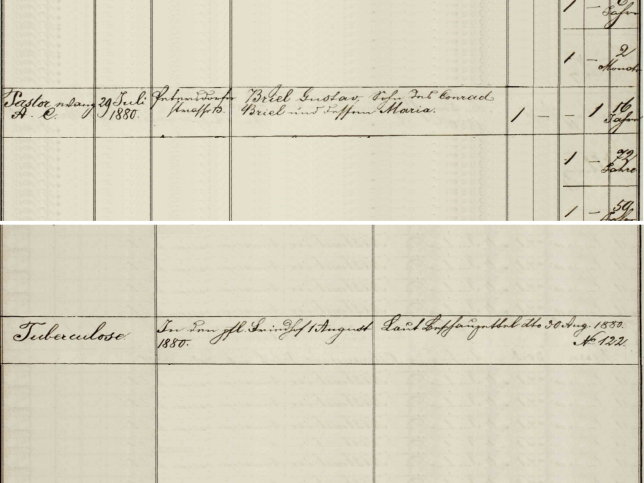 1 – 6
Jahre
1 – 2
Monate
Pastor evang 29 Juli Petersdorfer Briel Gustav, Sohn des Conrad
A. C. 1880. strasse 13. Briel und dessen Maria. 1 – – 1 16
Jahre
1 – 72
Jahre
1 – 59
Tuberculose In den pfl. Friedhof 1 August Laut Beschauzettel dto 30 Aug. 1880.
1880. № 122